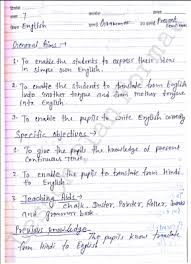 7
English
Grammar
Present
General Aims :-
1. To enable the students to express their views
in simple own English.
2. To enable the students to translate from English
into mother tongue and from mother tongue
into English.
3. To enable the pupils to write English correctly
Specific Objectives :-
1. To give the pupils the knowledge of present
continuous tense.
2. To enable the pupils to translate from Hindi
to English.
3. Teaching Aids :-
chalk, Duster, Pointer, Roller,
and grammar book.
Previous knowledge
The pupils know translate
from Hindi to English